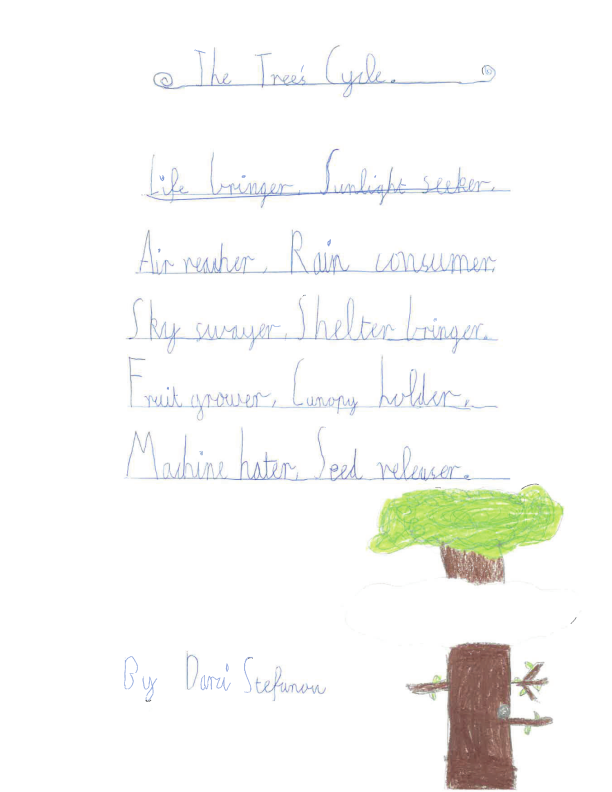 The Tree's Cycle.
Life bringer, Sunlight seeker.
Air reacher, Rain consumer,
Sky swayer, Shelter bringer.
Fruit grower, Canopy holder,
Machine hater, Seed releaser.
By Darci Stefanon